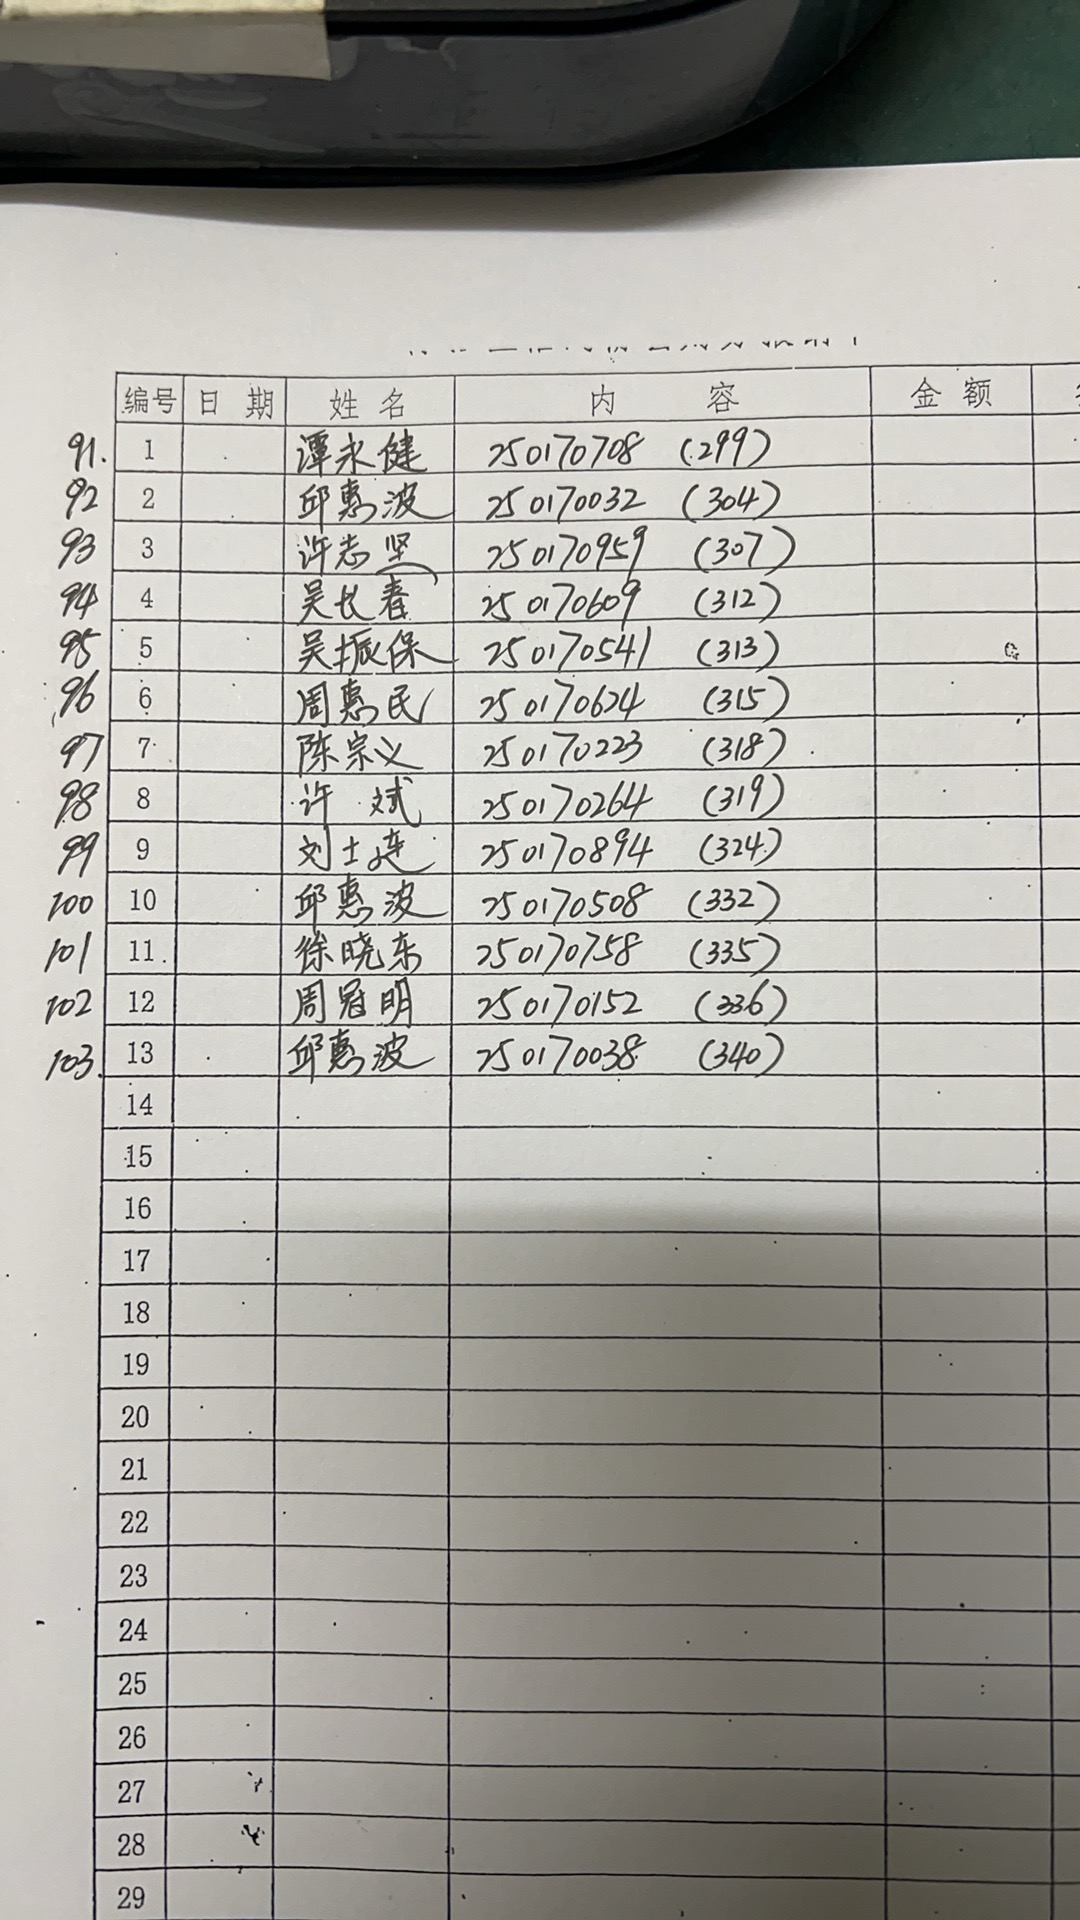 编号 日 期 姓 名 内 容 金 额
91. 1 潭永健 250170708 (299)
92 2 邱惠波 250170032 (304)
93 3 许志坚 250170959 (307)
94 4 吴长春 250170609 (312)
95 5 吴振保 250170541 (313)
96 6 周惠民 250170624 (315)
97 7 陈宗义 250170223 (318)
98 8 许 斌 250170264 (319)
99 9 刘士连 250170894 (324)
100 10 邱惠波 250170508 (332)
101 11 徐晓东 250170758 (335)
102 12 周冠明 250170152 (336)
103. 13 邱惠波 250170038 (340)
14
15
16
17
18
19
20
21
22
23
24
25
26
27
28
29